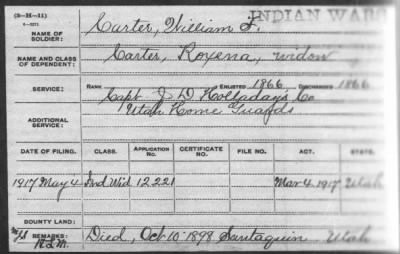 (3-H-11) INDIAN WARS
NAME OF SOLDIER: Carter, William F.
NAME AND CLASS OF DEPENDENT: Carter, Roxena, widow
SERVICE: RANK ENLISTED 1866, DISCHARGED 1866
Capt J D Holladay's Co
Utah Home Guards
ADDITIONAL SERVICE:
DATE OF FILING. CLASS. APPLICATION No. CERTIFICATE No. FILE No. ACT. STATE.
1917 May 4 Ind Wid 12221 Mar 4 1917 Utah
BOUNTY LAND:
REMARKS: Died, Oct 10 1898 Santaquin Utah